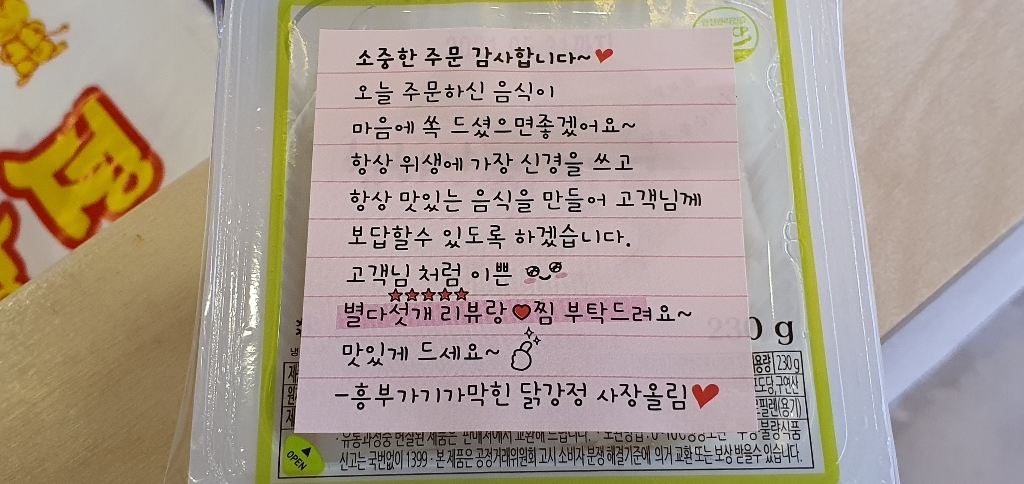 소중한 주문 감사합니다~
오늘 주문하신 음식이
마음에 쏙 드셨으면좋겠어요~
항상 위생에 가장 신경을 쓰고
항상 맛있는 음식을 만들어 고객님께
보답할수 있도록 하겠습니다.
고객님 처럼 이쁜
별다섯개 리뷰랑 찜 부탁드려요~
맛있게 드세요~
-흥부가기가막힌 닭강정 사장올림
230 g
용량 230 g
포도당,구연산
(용기)
불량식품
OPEN
신고는 국번없이 1399 · 본 제품은 공정거래위원회 고시 소비자 분쟁 해결기준에 의거 교환 또는 보상 받을수 있습니다.